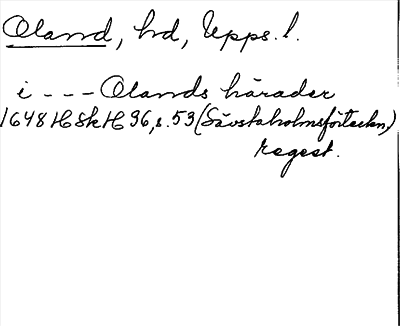 Oland, hd, Upps. l.
i - - - Olands härader
1648 HSkH 36, s. 53 (Sävstaholmsförteckn.)
regest.